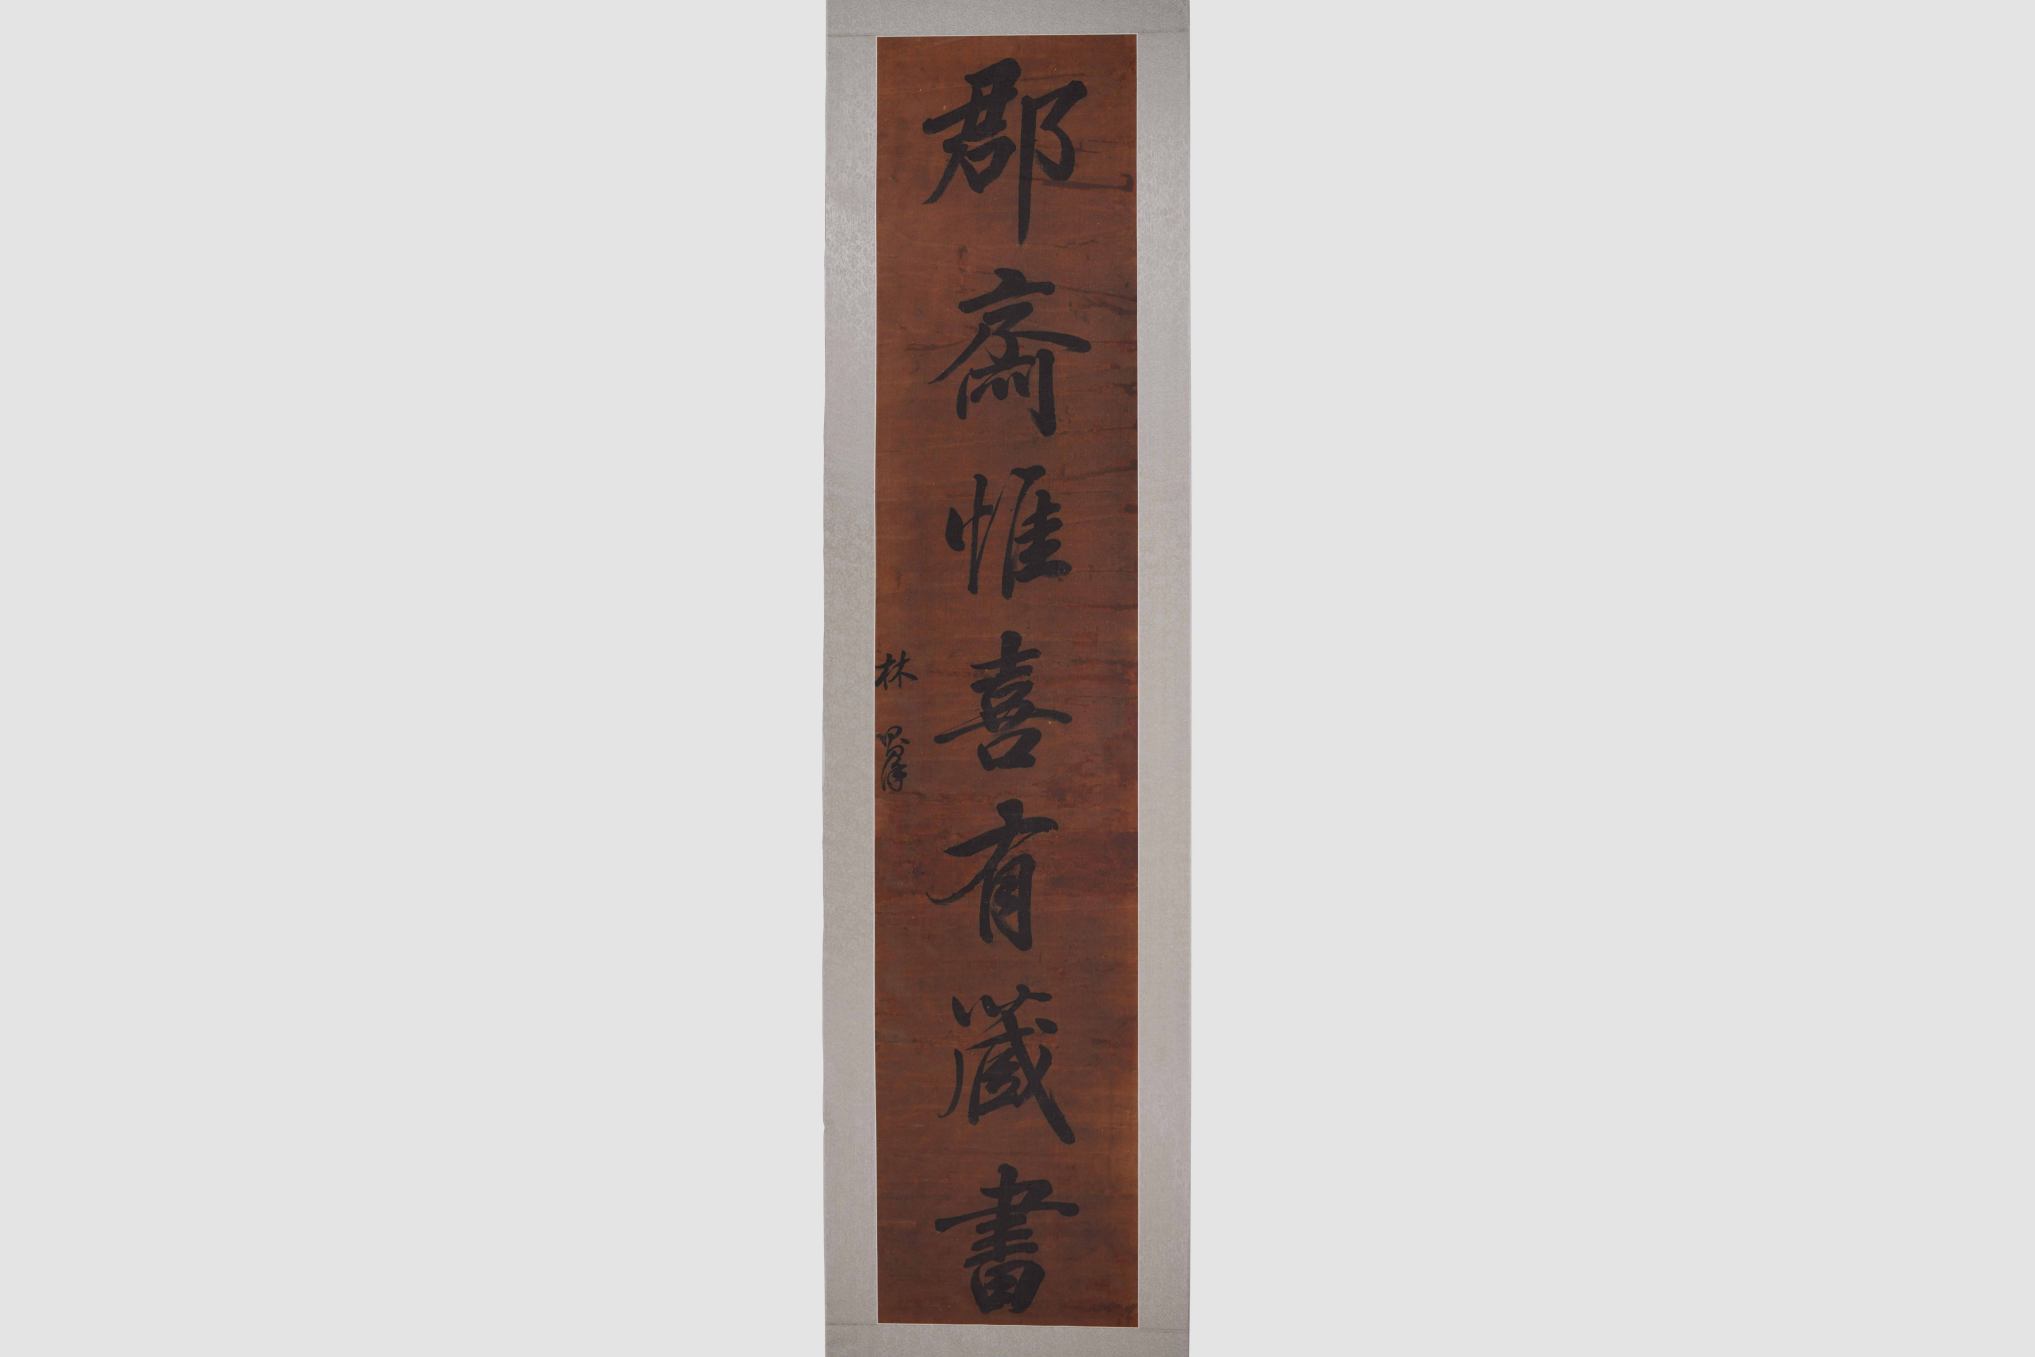 郡齋惟喜有藏書
林